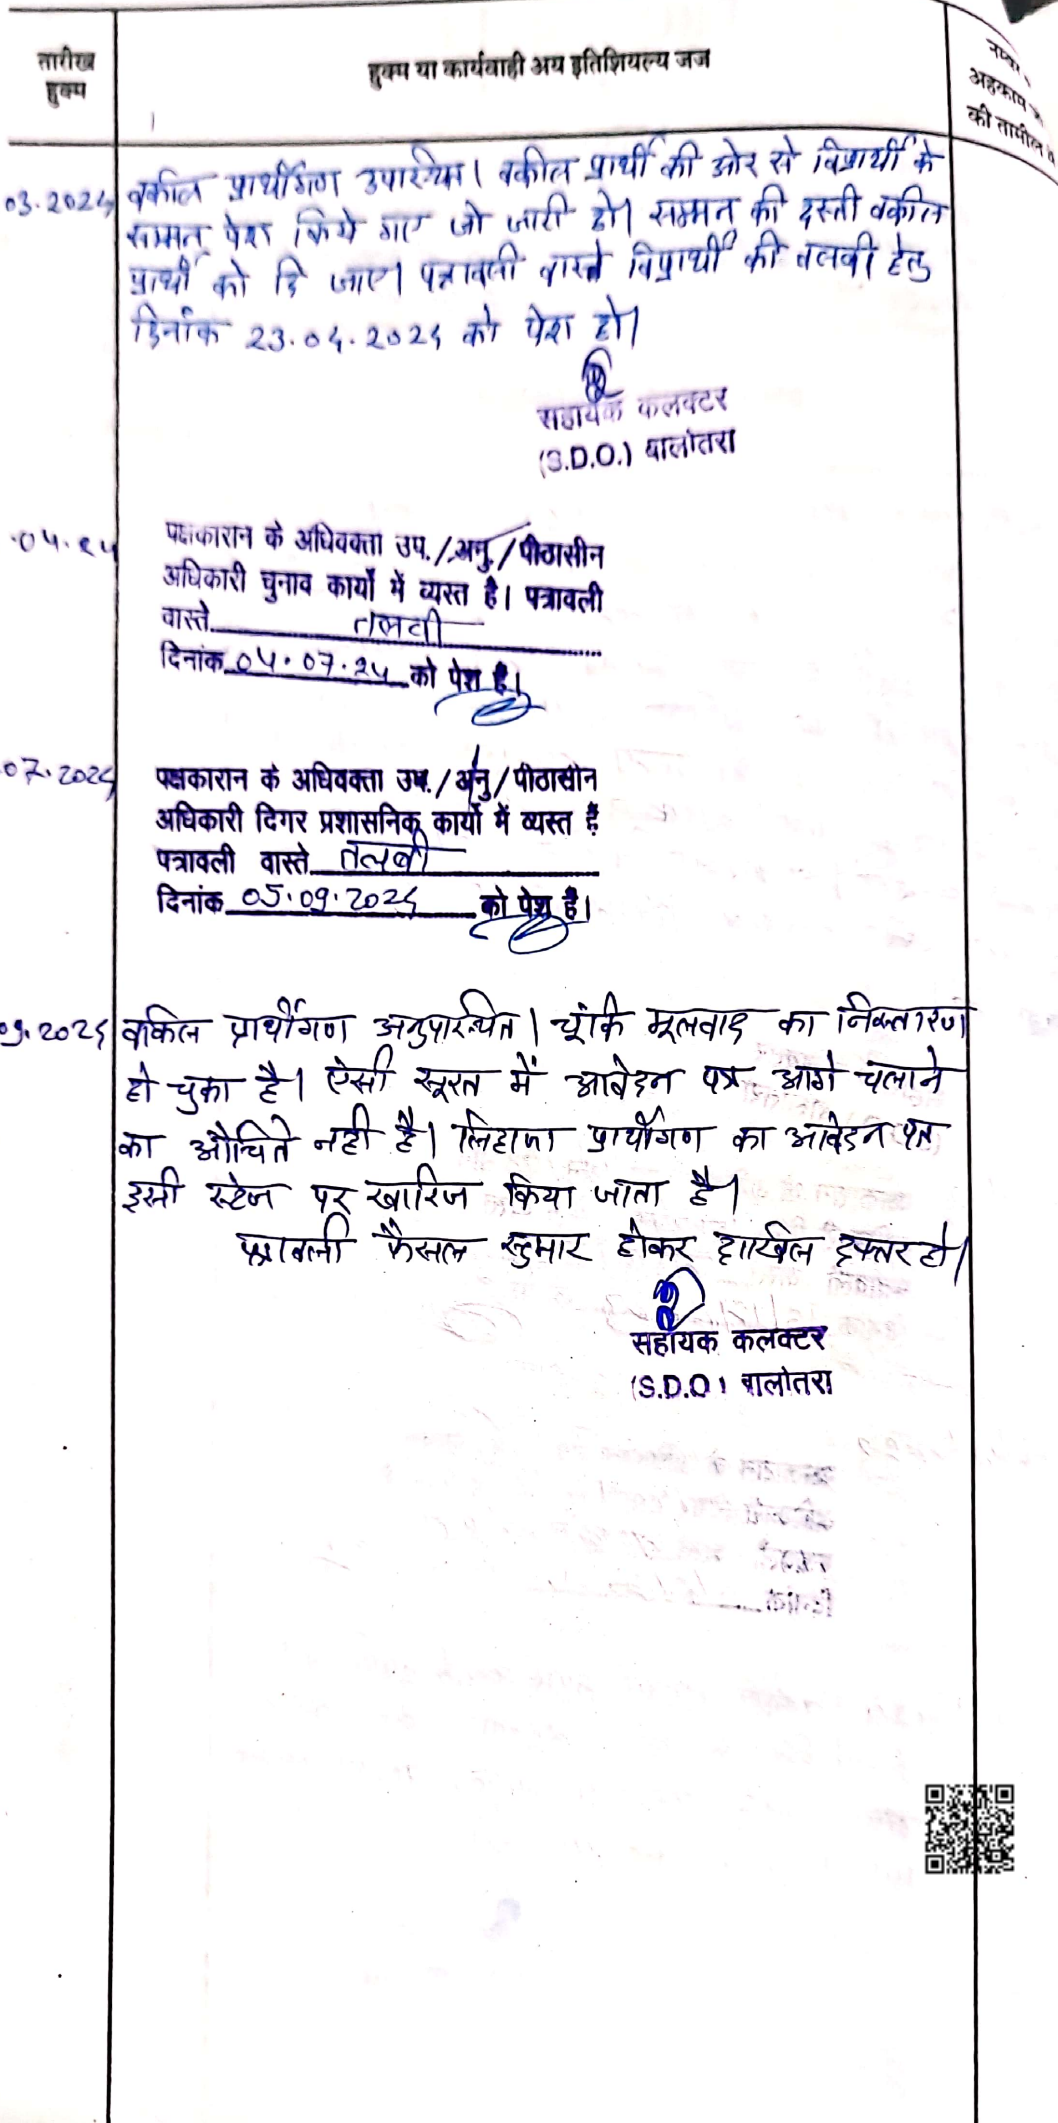 तारीख
हुक्म
हुक्म या कार्यवाही अय इतिशियल्य जज
नम्बर
अहकाम
की तामील
03.2024 वकील प्रार्थीगण उपस्थित। वकील प्रार्थी की ओर से विप्रार्थी के
सम्मन पेश किये गए जो जारी हो। सम्मन की दस्ती वकील
प्रार्थी को दि जाए। पत्रावली वास्ते विप्रार्थी की तलबी हेतु
दिनांक 23.04.2024 को पेश हो।
सहायक कलक्टर
(S.D.O.) बालोतरा
.04.24 पक्षकारान के अधिवक्ता उप./अनु./पीठासीन
अधिकारी चुनाव कार्यों में व्यस्त है। पत्रावली
वास्ते तलबी
दिनांक 04.07.24 को पेश है।
07.2024 पक्षकारान के अधिवक्ता उप./अनु/पीठासीन
अधिकारी दिगर प्रशासनिक कार्यो में व्यस्त है
पत्रावली वास्ते तलबी
दिनांक 05.09.2024 को पेश है।
09.2024 वकिल प्रार्थीगण अनुपस्थित। चूंकि मूलवाद का निस्तारण
हो चुका है। ऐसी सूरत में आवेदन पत्र आगे चलाने
का औचिते नही है। लिहाजा प्रार्थीगण का आवेदन पत्र
इसी स्टेज पर खारिज किया जाता है।
पत्रावली फैसल सुमार होकर दाखिल दफ्तर हो।
सहायक कलक्टर
(S.D.O) बालोतरा